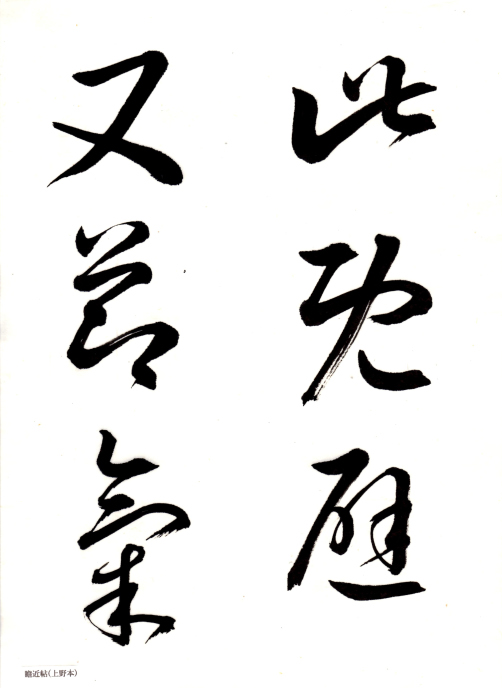 此既避
又節氣
瞻近帖(上野本)